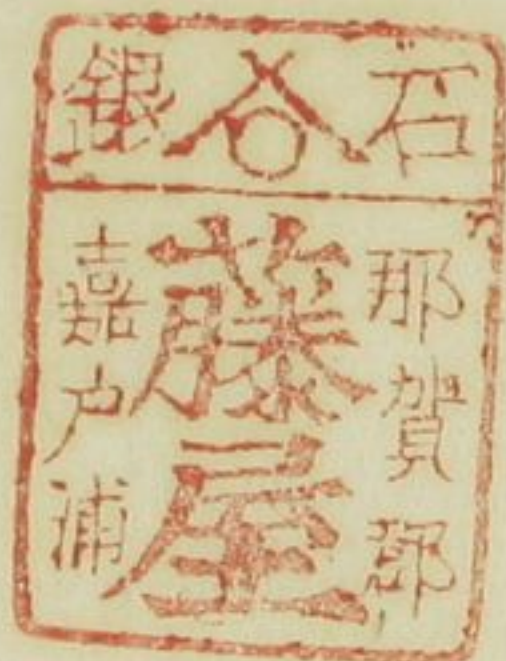 石銀
那賀郡
藤屋
嘉戸浦